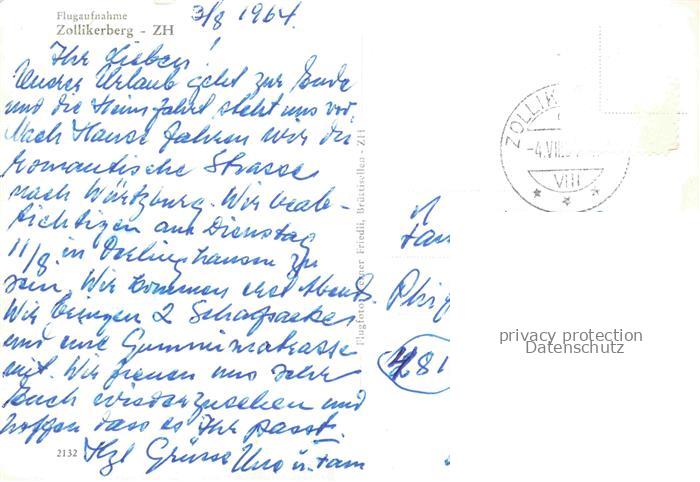 Flugaufnahme
Zollikerberg - ZH
3/8 1964.
Ihr Lieben!
Unser Urlaub geht zur Ende
und die Heimfahrt steht uns vor.
Nach Hause fahren wir die
romantische Strasse
nach Würtzburg. Wir beab-
sichtigen am Dienstag
11/8. in Oerlinghausen zu
sein. Wir kommen erst Abends.
Wir bringen 2 Schlafsäcke
und eine Gummimatrasse
mit. Wir freuen uns sehr
Euch wiederzusehen und
hoffen dass es Ihr passt.
Hzl Grüsse Uno u. Fam
2132
Flugfoto Werner Friedli, Brüttisellen - ZH
ZOLLIK
-4.VIII.
VIII
Fam
481
privacy protection
Datenschutz